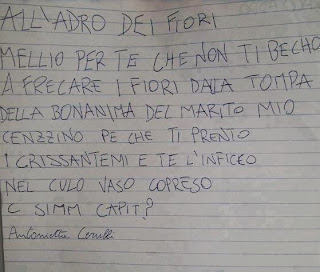 ALL'ADRO DEI FIORI
MELLIO PER TE CHE NON TI BECHO
A FRECARE I FIORI DALA TOMPA
DELLA BONANIMA DEL MARITO MIO
CENZZINO PE CHE TI PRENTO
I CRISSANTEMI E TE L'INFICEO
NEL CULO VASO COPRESO
C SIMM CAPIT?
Antonietta Cerulli